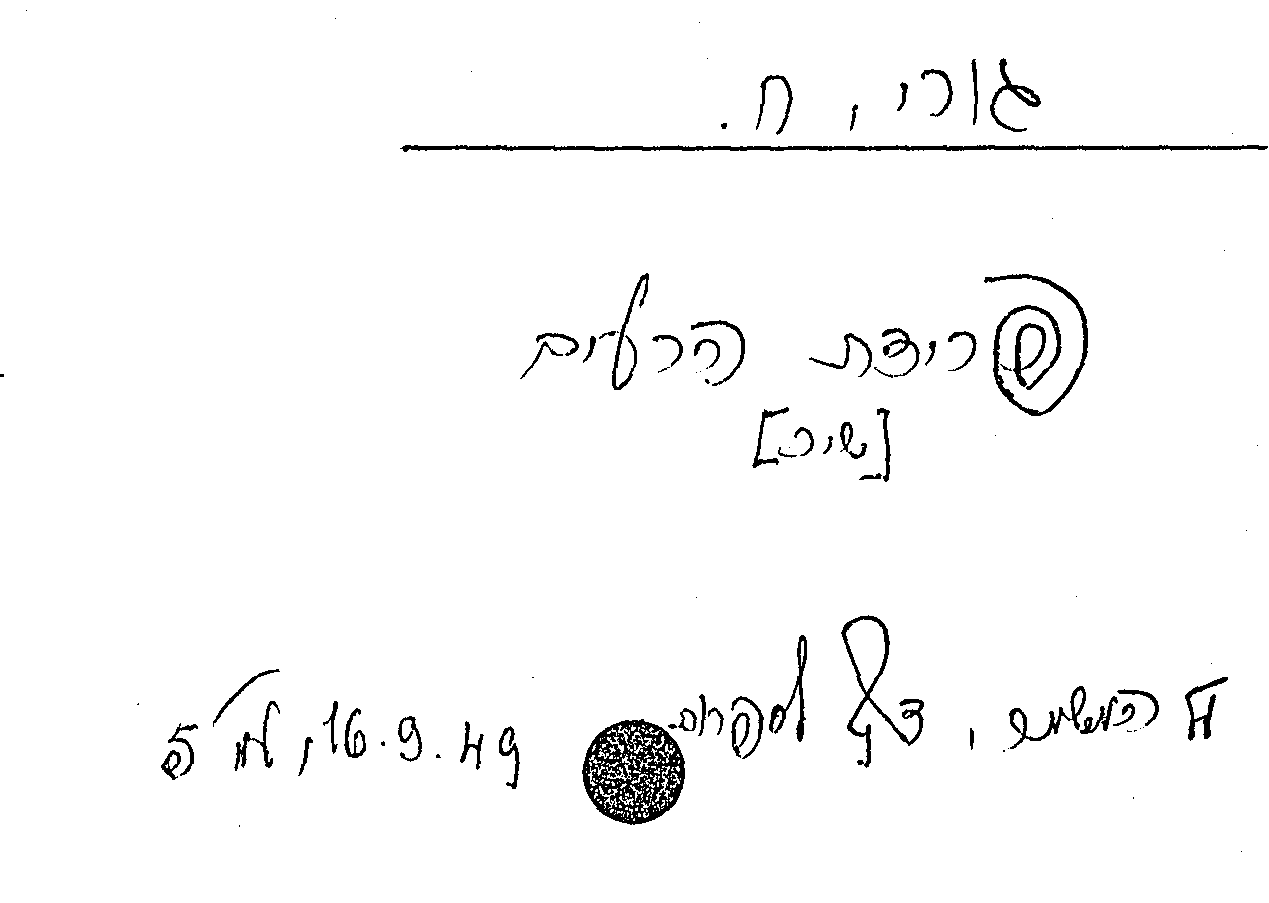 גורי, ח.
פרידת הרעים
[שיר]
דף לספרות. 16.9.49, עמ' 5